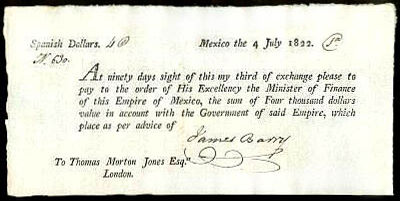 Spanish Dollars. 4 Mexico the 4 July 1822.
N. 630.
At ninety days sight of this my third of exchange please to
pay to the order of His Excellency the Minister of Finance
of this Empire of Mexico, the sum of Four thousand dollars
value in account with the Government of said Empire, which
place as per advice of
James Barry
To Thomas Morton Jones Esqr.
London.